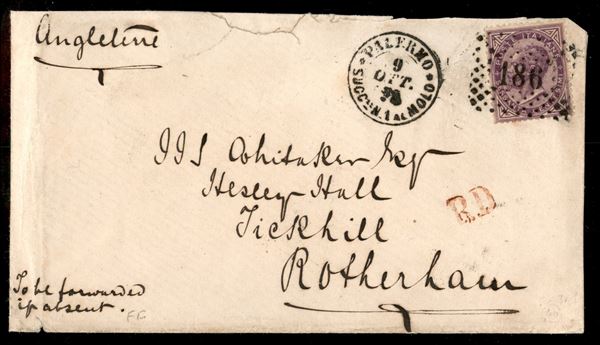 Angleterre
PALERMO
9
OTT.
SUCC. N.1 AL MOLO
186
IIS Whitaker Esq
Hesley Hall
Tickhill
Rotherham
P.D
To be forwarded
if absent.